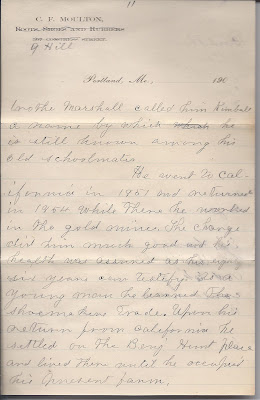 11
C. F. MOULTON,
BOOTS, SHOES AND RUBBERS
CONGRESS STREET.
9 Hill
Portland, Me., 190
brother Marshall called him Kimball
a name by which which he
is still known among his
old schoolmates.
He went to Cal-
ifornia in 1851 and returned
in 1854 while there he worked
in the gold mines. The change
did him much good and his
health was assured as his eighty
six years can testify. As a
young man he learned the
shoemakers trade. Upon his
return from California he
settled on the Benj Hunt place
and lived there until he occupied
his present farm.